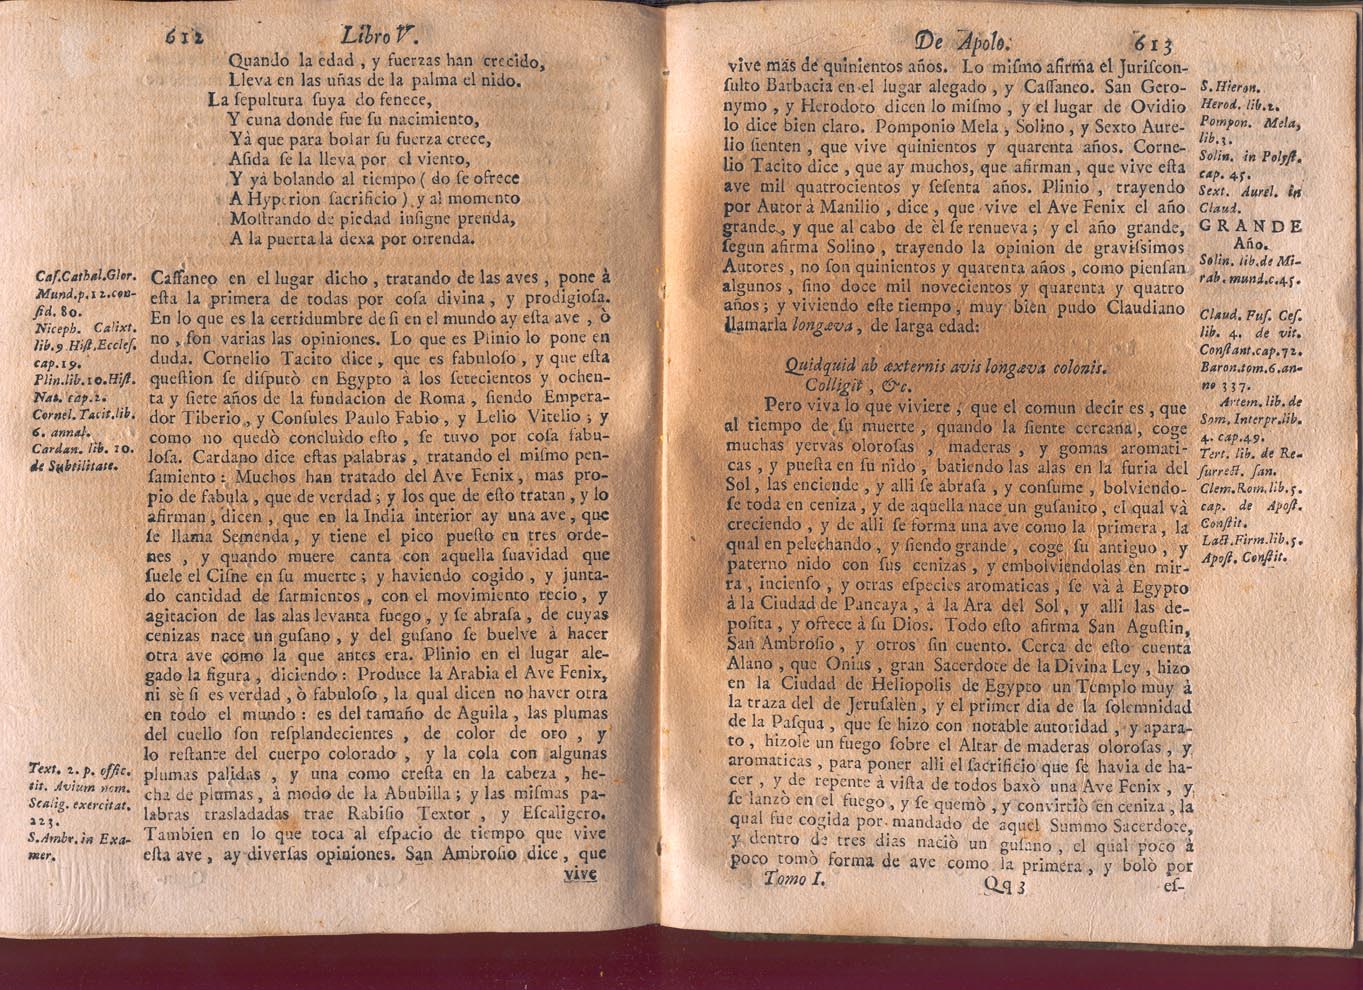 612 Libro V.
Quando la edad , y fuerzas han crecido,
Lleva en las uñas de la palma el nido.
La ſepultura ſuya do fenece,
Y cuna donde fue ſu nacimiento,
Yà que para bolar ſu fuerza crece,
Aſida ſe la lleva por el viento,
Y yà bolando al tiempo ( do ſe ofrece
A Hyperion ſacrificio ) y al momento
Moſtrando de piedad inſigne prenda,
A la puerta la dexa por ofrenda.
Caſ.Cathal.Glor.
Mund.p.12.con-
ſid. 80.
Niceph. Calixt.
lib.9 Hiſt.Eccleſ.
cap.19.
Plin.lib.10.Hiſt.
Nat. cap.2.
Cornel.Tacit.lib.
6. annal.
Cardan. lib. 10.
de Subtilitate.
Caſſaneo en el lugar dicho , tratando de las aves , pone à
eſta la primera de todas por coſa divina , y prodigioſa.
En lo que es la certidumbre de ſi en el mundo ay eſta ave , ò
no , ſon varias las opiniones. Lo que es Plinio lo pone en
duda. Cornelio Tacito dice , que es fabuloſo , y que eſta
queſtion ſe diſputò en Egypto à los ſetecientos y ochen-
ta y ſiete años de la fundacion de Roma , ſiendo Empera-
dor Tiberio , y Conſules Paulo Fabio , y Lelio Vitelio ; y
como no quedò concluìdo eſto , ſe tuvo por coſa fabu-
loſa. Cardano dice eſtas palabras , tratando el miſmo pen-
ſamiento : Muchos han tratado del Ave Fenix , mas pro-
pio de fabula , que de verdad ; y los que de eſto tratan , y lo
afirman , dicen , que en la India interior ay una ave , que
ſe llama Semenda , y tiene el pico pueſto en tres orde-
nes , y quando muere canta con aquella ſuavidad que
ſuele el Ciſne en ſu muerte ; y haviendo cogido , y junta-
do cantidad de ſarmientos , con el movimiento recio , y
agitacion de las alas levanta fuego , y ſe abraſa , de cuyas
cenizas nace un guſano , y del guſano ſe buelve à hacer
otra ave como la que antes era. Plinio en el lugar ale-
gado la figura , diciendo : Produce la Arabia el Ave Fenix,
ni sè ſi es verdad , ò fabuloſo , la qual dicen no haver otra
en todo el mundo : es del tamaño de Aguila , las plumas
del cuello ſon reſplandecientes , de color de oro , y
lo reſtante del cuerpo colorado , y la cola con algunas
plumas palidas , y una como creſta en la cabeza , he-
cha de plumas , à modo de la Abubilla ; y las miſmas pa-
labras trasladadas trae Rabiſio Textor , y Eſcaligero.
Tambien en lo que toca al eſpacio de tiempo que vive
eſta ave , ay diverſas opiniones. San Ambroſio dice , que
vive
Text. 2. p. offic.
tit. Avium nom.
Scalig. exercitat.
223.
S.Ambr.in Exa-
mer.
De Apolo. 613
vive más de quinientos años. Lo miſmo afirma el Juriſcon-
ſulto Barbacia en el lugar alegado , y Caſſaneo. San Gero-
nymo , y Herodoto dicen lo miſmo , y el lugar de Ovidio
lo dice bien claro. Pomponio Mela , Solino , y Sexto Aure-
lio ſienten , que vive quinientos y quarenta años. Corne-
lio Tacito dice , que ay muchos, que afirman , que vive eſta
ave mil quatrocientos y ſeſenta años. Plinio , trayendo
por Autor à Manilio , dice , que vive el Ave Fenix el año
grande , y que al cabo de èl ſe renueva ; y el año grande,
ſegun afirma Solino , trayendo la opinion de graviſſimos
Autores , no ſon quinientos y quarenta años , como pienſan
algunos , ſino doce mil novecientos y quarenta y quatro
años ; y viviendo eſte tiempo , muy bien pudo Claudiano
llamarla longæva , de larga edad:
Quidquid ab æxternis avis longæva colonis.
Colligit , &c.
Pero viva lo que viviere , que el comun decir es , que
al tiempo de ſu muerte , quando la ſiente cercana, coge
muchas yervas oloroſas , maderas , y gomas aromati-
cas , y pueſta en ſu nido , batiendo las alas en la furia del
Sol , las enciende , y alli ſe abraſa , y conſume , bolviendo-
ſe toda en ceniza , y de aquella nace un guſanito , el qual và
creciendo , y de alli ſe forma una ave como la primera , la
qual en pelechando , y ſiendo grande , coge ſu antiguo , y
paterno nido con ſus cenizas , y embolviendolas en mir-
ra , incienſo , y otras eſpecies aromaticas , ſe và à Egypto
à la Ciudad de Pancaya , à la Ara del Sol , y alli las de-
poſita , y ofrece à ſu Dios. Todo eſto afirma San Aguſtin,
San Ambroſio , y otros ſin cuento. Cerca de eſto cuenta
Alano , que Onias , gran Sacerdote de la Divina Ley , hizo
en la Ciudad de Heliopolis de Egypto un Templo muy à
la traza del de Jeruſalèn , y el primer dia de la ſolemnidad
de la Paſqua , que ſe hizo con notable autoridad , y apara-
to , hizole un fuego ſobre el Altar de maderas oloroſas , y
aromaticas , para poner alli el ſacrificio que ſe havia de ha-
cer , y de repente à viſta de todos baxò una Ave Fenix , y
ſe lanzò en el fuego , y ſe quemò , y convirtiò en ceniza , la
qual fue cogida por mandado de aquel Summo Sacerdote,
y dentro de tres dias naciò un guſano , el qual poco à
poco tomò forma de ave como la primera , y bolò por
Tomo I. Qq 3 eſ-
S. Hieron.
Herod. lib.2.
Pompon. Mela,
lib.3.
Solin. in Polyſt.
cap. 45.
Sext. Aurel. in
Claud.
GRANDE
Año.
Solin. lib.de Mi-
rab. mund.c.45.
Claud. Fuſ. Ceſ.
lib. 4. de vit.
Conſtant.cap.72.
Baron.tom.6.an-
no 337.
Artem. lib. de
Som. Interpr.lib.
4. cap.49.
Tert. lib. de Re-
ſurrect. ſan.
Clem.Rom.lib.5.
cap. de Apoſt.
Conſtit.
Lact.Firm.lib.5.
Apoſt. Conſtit.